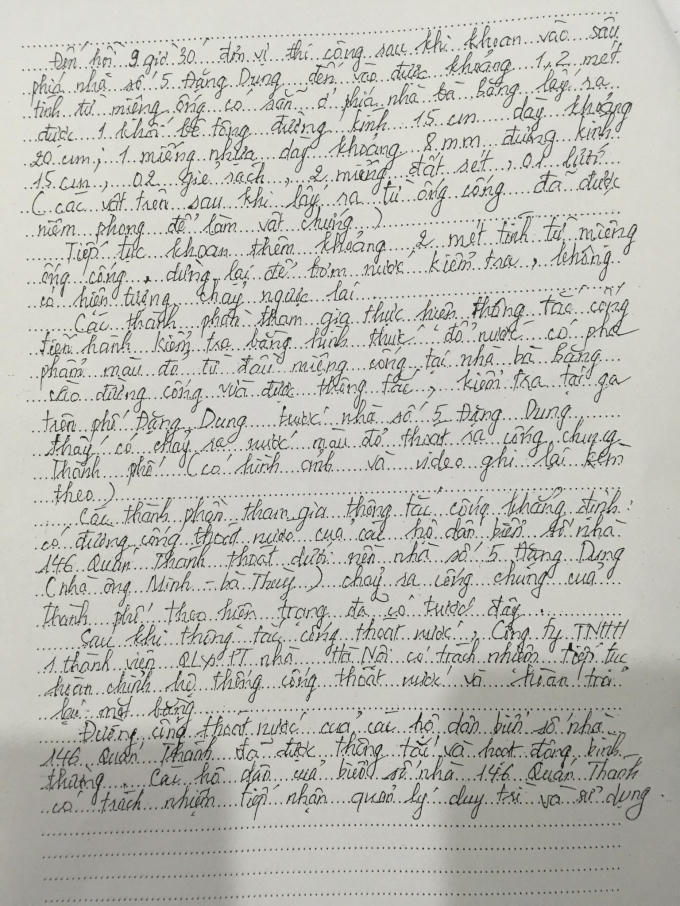 Đến hồi 9 giờ 30' đơn vị thi công sau khi khoan vào sâu
phía nhà số 5 Đặng Dung đến vào được khoảng 1,2 mét
tính từ miệng ống có sẵn ở phía nhà bà Bằng lấy ra
được 1 khối bê tông đường kính 15 cm dày khoảng
20 cm; 1 miếng nhựa dày khoảng 8 mm đường kính
15 cm, 02 giẻ rách, 2 miếng đất sét, 01
(các vật trên sau khi lấy ra từ ống cống đã được
niêm phong để làm vật chứng)
Tiếp tục khoan thêm khoảng 2 mét tính từ miệng
ống cống, dừng lại để bơm nước kiểm tra, không
có hiện tượng chảy ngược lại
Các thành phần tham gia thực hiện thông tắc cống
tiến hành kiểm tra bằng hình thức đổ nước có pha
phẩm màu đỏ từ đầu miệng cống tại nhà bà Bằng
vào đường cống vừa được thông tắc, kiểm tra tại ga
trên phố Đặng Dung trước nhà số 5 Đặng Dung
thấy có chảy ra nước màu đỏ thoát ra cống chung
thành phố (có hình ảnh và video ghi lại kèm
theo)
Các thành phần tham gia thông tắc cống khẳng định:
có đường cống thoát nước của các hộ dân biển số nhà
146 Quán Thánh thoát dưới nền nhà số 5 Đặng Dung
(nhà ông Minh - bà Thúy) chảy ra cống chung của
thành phố theo hiện trạng đã có trước đây.
Sau khi thông tắc cống thoát nước, Công ty TNHH
1 thành viên QL&PT nhà Hà Nội có trách nhiệm tiếp tục
hoàn chỉnh hệ thống cống thoát nước và hoàn trả
lại mặt bằng
Đường cống thoát nước của các hộ dân biển số nhà
146 Quán Thánh đã được thông tắc và hoạt động bình
thường. Các hộ dân của biển số nhà 146 Quán Thánh
có trách nhiệm tiếp nhận quản lý duy trì và sử dụng.